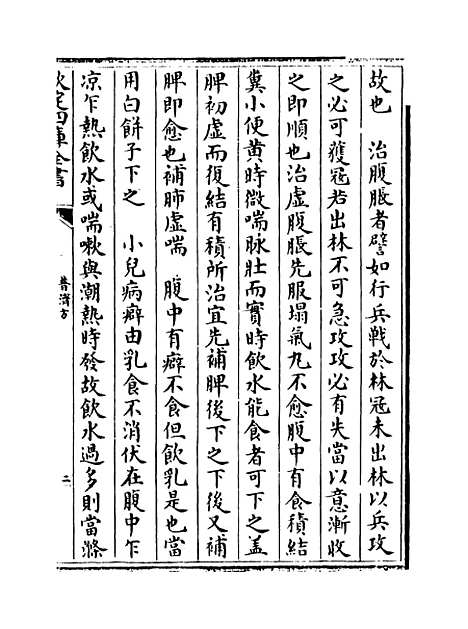 故也　治腹脹者譬如行兵戦於林冦未出林以兵攻
之必可獲冦若出林不可急攻攻必有失當以意漸收
之即順也治虚腹脹先服塌氣丸不愈腹中有食積結
糞小便黄時微喘脉壮而實時飲水能食者可下之盖
脾初虚而復結有積所治宜先補脾後下之下後又補
脾即愈也補肺虚喘　腹中有癖不食但飲乳是也當
用白餅子下之　小兒病癖由乳食不消伏在腹中乍
凉乍熱飲水或喘嗽與潮熱時發故飲水過多則當滌
欽定四庫全書
普濟方
二